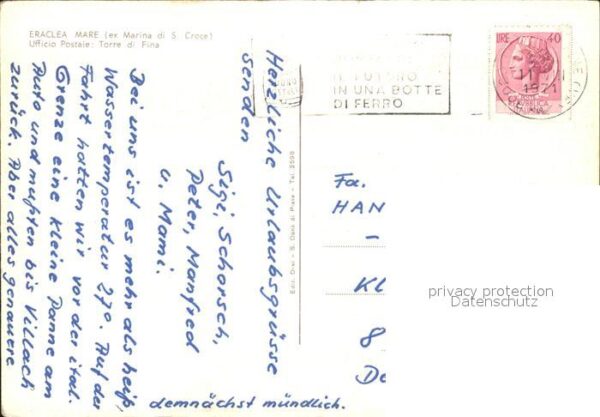 ERACLEA MARE (ex Marina di S. Croce)
Ufficio Postale: Torre di Fina
Herzliche Urlaubsgrüsse
senden
Sigi, Schorsch,
Peter, Manfred
u. Mami.
Bei uns ist es mehr als heiß,
Wassertemperatur 27°. Auf der
Fahrt hatten wir vor der ital.
Grenze eine kleine Panne am
Auto und mußten bis Villach
zurück. Aber alles genauere
demnächst mündlich.
IL FUTURO
IN UNA BOTTE
DI FERRO
LIRE 40
1971
Fa.
HAN
-
KL
8
De
privacy protection
Datenschutz